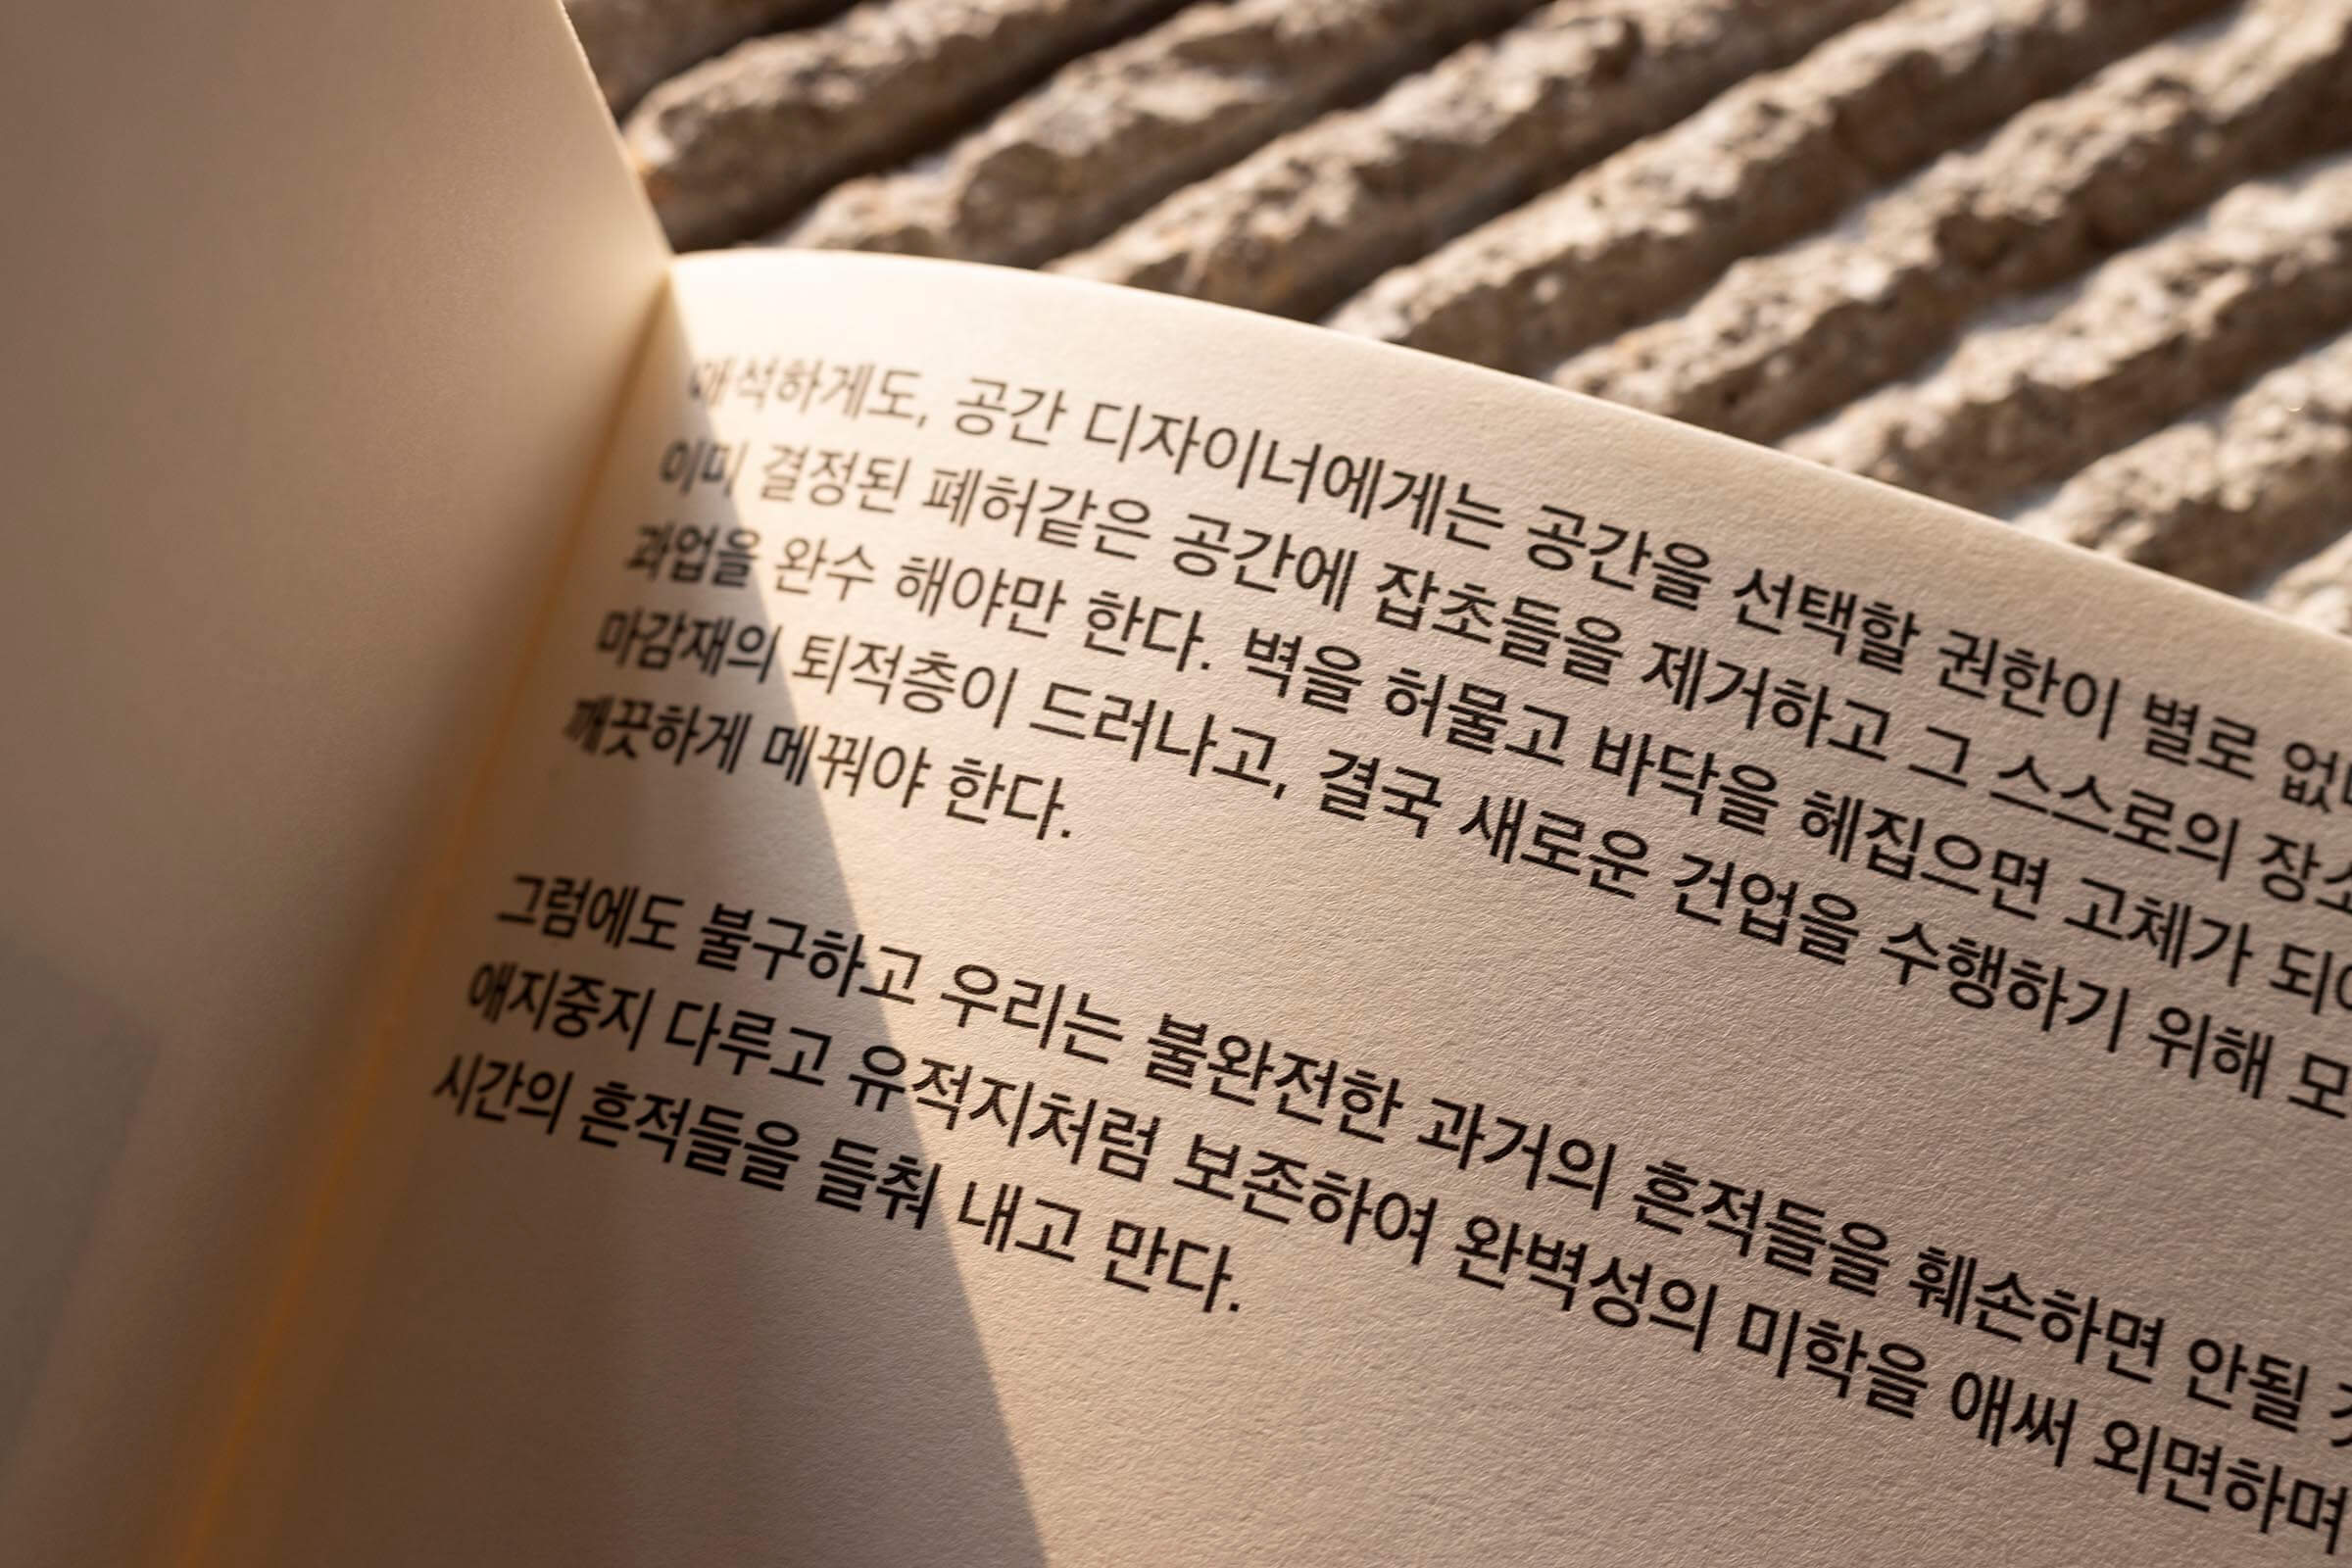 애석하게도, 공간 디자이너에게는 공간을 선택할 권한이 별로
이미 결정된 폐허같은 공간에 잡초들을 제거하고 그 스스로의
과업을 완수 해야만 한다. 벽을 허물고 바닥을 헤집으면 고체가
마감재의 퇴적층이 드러나고, 결국 새로운 건업을 수행하기 위해
깨끗하게 메꿔야 한다.
그럼에도 불구하고 우리는 불완전한 과거의 흔적들을 훼손하면 안될
애지중지 다루고 유적지처럼 보존하여 완벽성의 미학을 애써 외면하며
시간의 흔적들을 들춰 내고 만다.